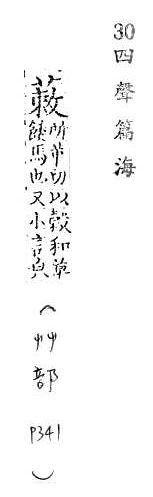 30 四聲篇海
蓛
所革切以穀和草
餧馬也又小言皃
（艸部 P341）